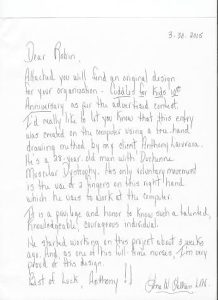 3.30.2015
Dear Robin,
Attached you will find an original design
for your organization - Cuddles for Kids
Anniversary as per the advertised contest.
I'd really like to let you know that this entry
was created on the computer using a free hand
drawing method by my client Anthony
He's a 28-year-old man with Duchenne
Muscular Dystrophy. His only voluntary movement
is the use of 2 fingers on his right hand
which he uses to work at the computer.
It is a privilege and honor to know such a talented,
knowledgeable, courageous individual.
We started working on this project about 3 weeks
ago. And as one of his full time nurses, I'm very
proud of this design.
Best of Luck, Anthony!!
LPN